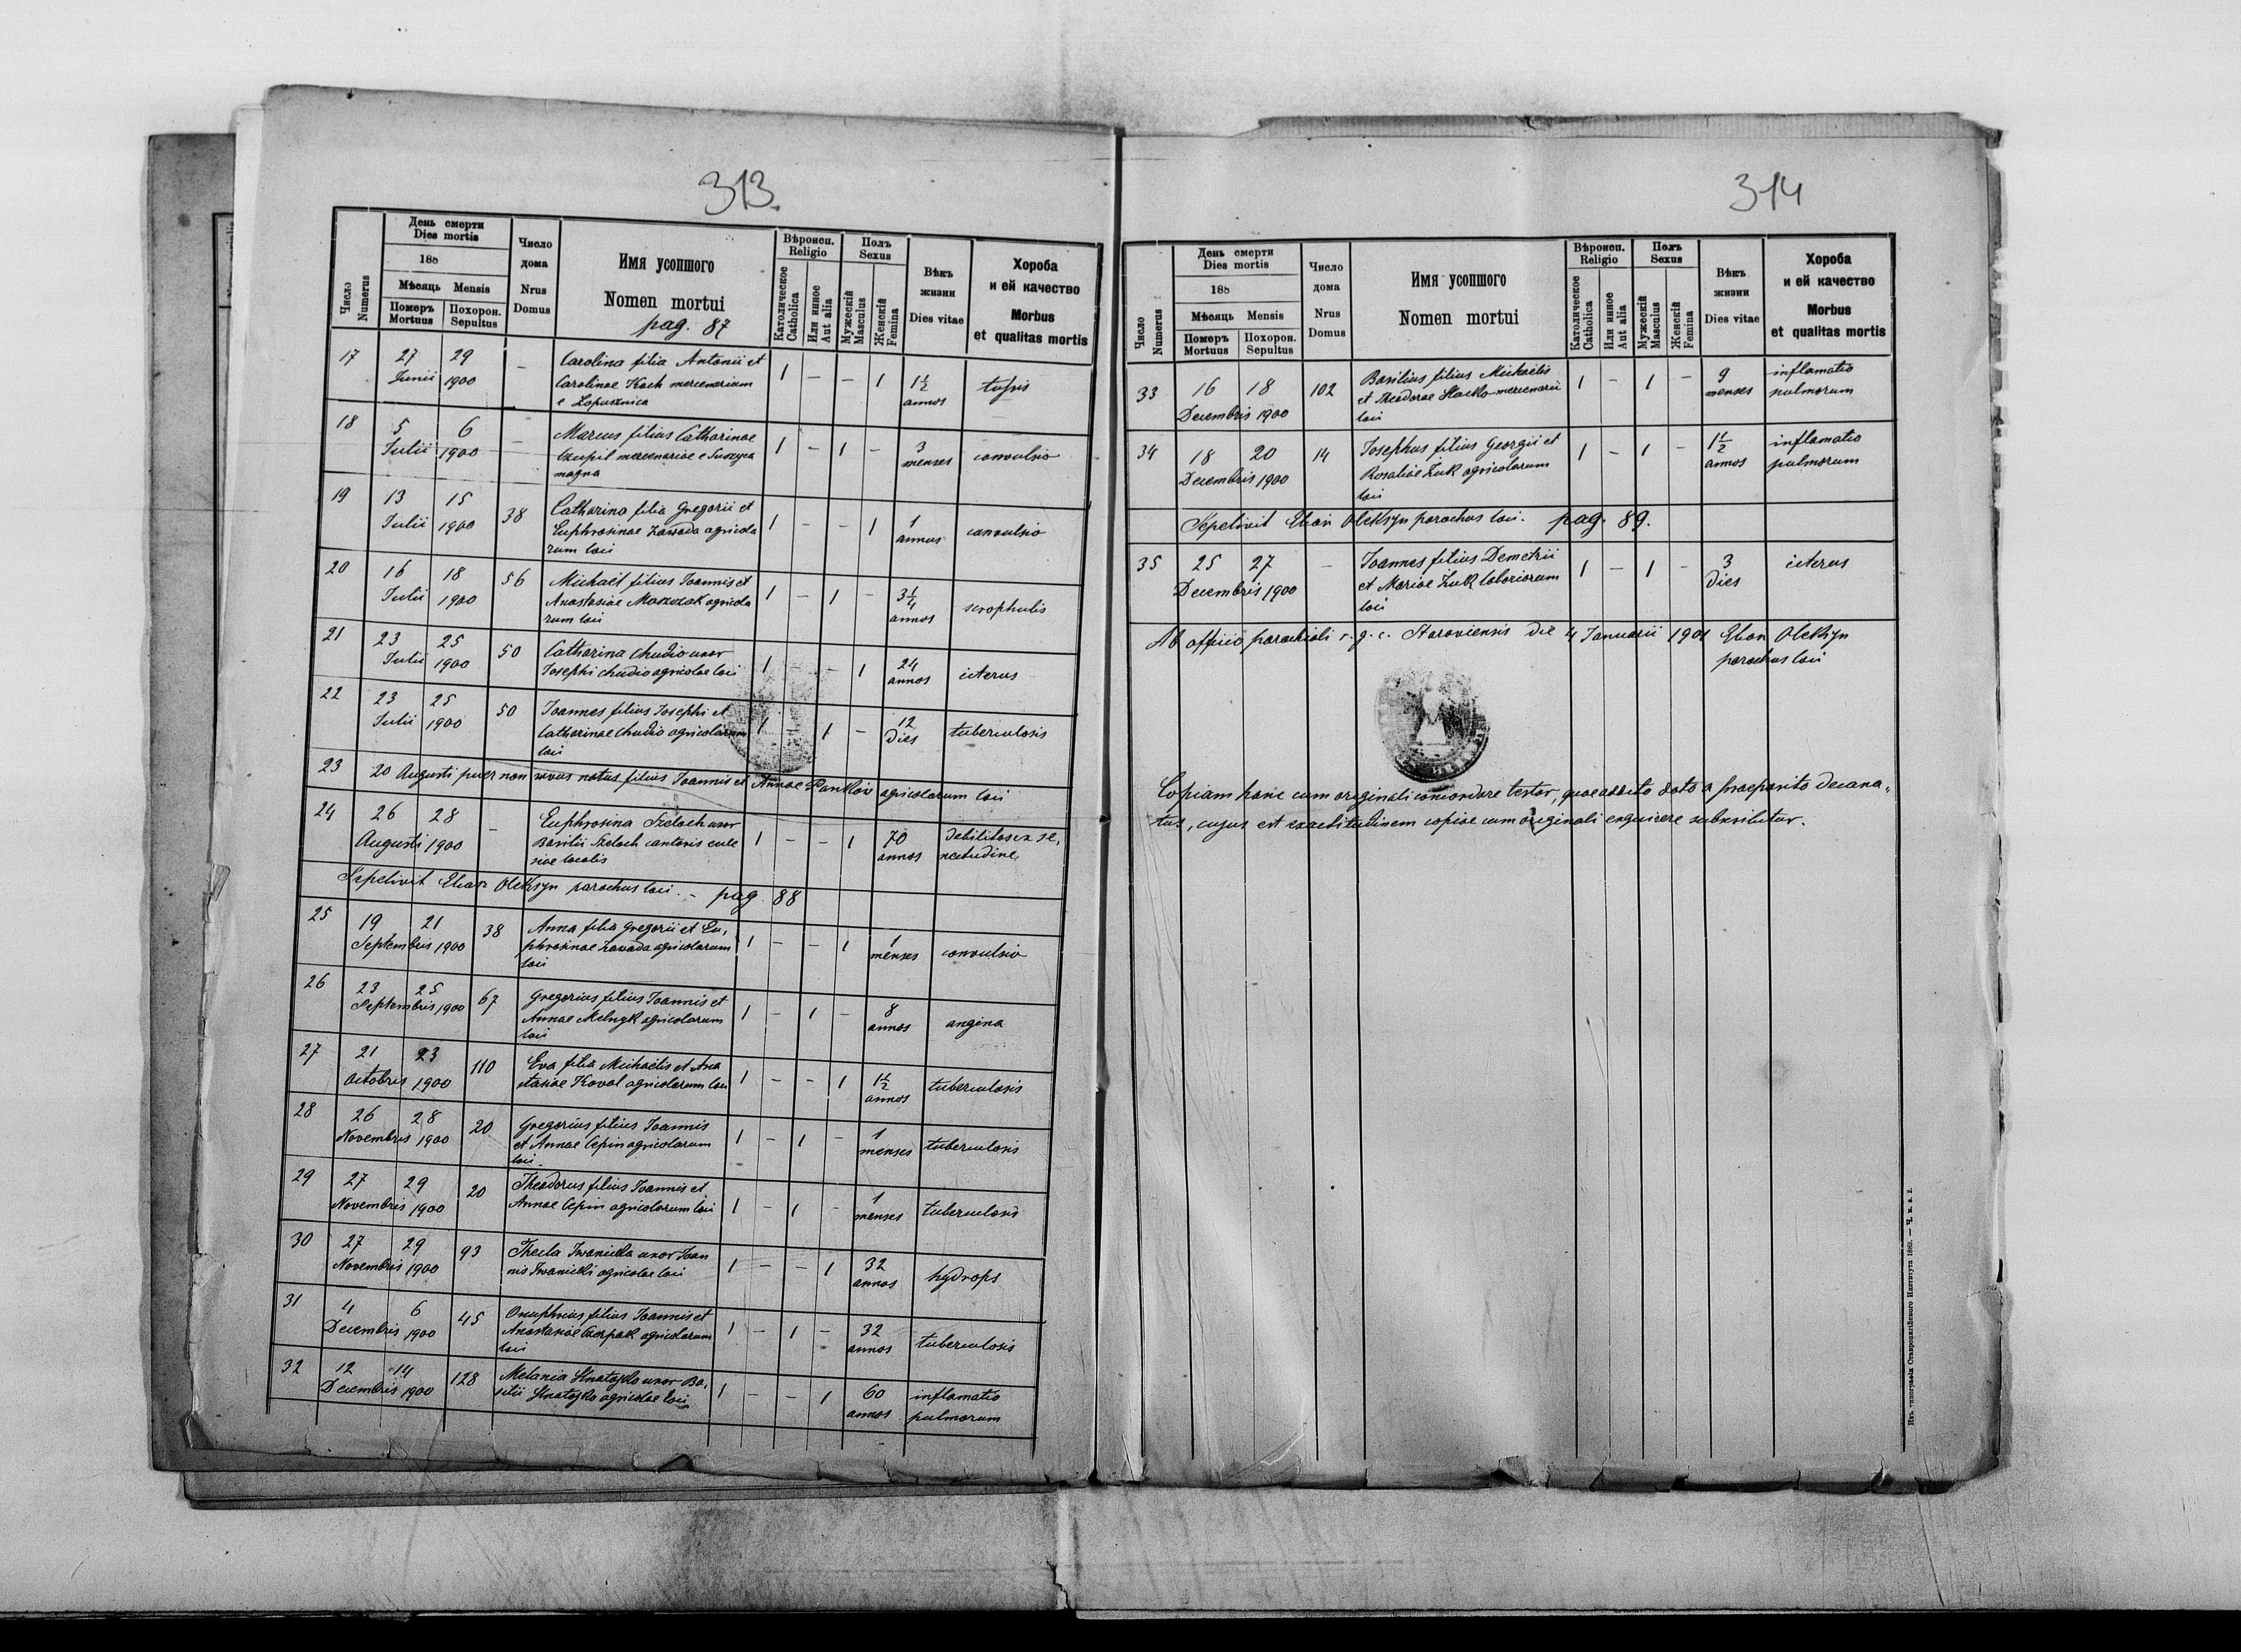 313.
Число
Numerus
День смерти
Dies mortis
188
Мѣсяць Mensis
Померъ
Mortuus
Похорон.
Sepultus
Число
дома
Nrus
Domus
Имя усопшого
Nomen mortui
pag. 87
Вѣроисп.
Religio
Католическое
Catholica
Или инное
Aut alia
Полъ
Sexus
Мужескій
Masculus
Женскій
Femina
Вѣкъ
жизни
Dies vitae
Хороба
и ей качество
Morbus
et qualitas mortis
17 27 29 – Carolina filia Antonii et 1 – – 1 1½ tussis
Junii 1900 Carolinae Koch mercenariorum annos
e Lopusznica
18 5 6 – Marcus filius Catharinae 1 – 1 – 3 convulsio
Julii 1900 Czupil mercenariae e Suszyca menses
magna
19 13 15 38 Catharina filia Gregorii et 1 – – 1 1 convulsio
Julii 1900 Euphrosinae Zawada agricola annus
rum loci
20 16 18 56 Michaël filius Joannis et 1 – 1 – 3¼ scrophulis
Julii 1900 Anastasiae agricola annos
rum loci
21 23 25 50 Catharina Chudio uxor 1 – – 1 24 icterus
Julii 1900 Josephi Chudio agricolae loci annos
22 23 25 50 Joannes filius Josephi et 1 – 1 – 12 tuberculosis
Julii 1900 Catharinae Chudio agricolarum dies
loci
23 20 Augusti puer non vivus natus filius Joannis et Annae agricolarum loci
24 26 28 – Euphrosina Szeloch uxor 1 – – 1 70 debilitas ex se,
Augusti 1900 Basilii Szeloch cantoris eccle annos nectudine
siae localis
Sepelivit Elias Oleksyn parochus loci. – pag. 88
25 19 21 38 Anna filia Gregorii et Eu, 1 – – 1 1 convulsio
Septembris 1900 phrosinae Zawada agricolarum menses
loci
26 23 25 67 Gregorius filius Joannis et 1 – 1 – 8 angina
Septembris 1900 Annae Melnyk agricolarum annos
loci
27 21 23 110 Eva filia Michaëlis et Ana 1 – – 1 1½ tuberculosis
Octobris 1900 stasiae Koval agricolarum loci annos
28 26 28 20 Gregorius filius Joannis 1 – 1 – 1 tuberculosis
Novembris 1900 et Annae Cepin agricolarum menses
loci
29 27 29 20 Theodorus filius Joannis et 1 – 1 – 1 tuberculosis
Novembris 1900 Annae Cepin agricolarum loci menses
30 27 29 93 Thecla uxor Joan 1 – – 1 32 hydrops
Novembris 1900 nis agricolae loci annos
31 4 6 45 Onuphrius filius Joannis et 1 – 1 – 32 tuberculosis
Decembris 1900 Anastasiae agricolarum annos
loci
32 12 14 128 Melania uxor Ba, 1 – – 1 60 inflamatio
Decembris 1900 silii agricolae loci annos pulmorum
314
Число
Numerus
День смерти
Dies mortis
188
Мѣсяць Mensis
Померъ
Mortuus
Похорон.
Sepultus
Число
дома
Nrus
Domus
Имя усопшого
Nomen mortui
Вѣроисп.
Religio
Католическое
Catholica
Или инное
Aut alia
Полъ
Sexus
Мужескій
Masculus
Женскій
Femina
Вѣкъ
жизни
Dies vitae
Хороба
и ей качество
Morbus
et qualitas mortis
33 16 18 102 Basilius filius Michaëlis 1 – 1 – 9 inflamatio
Decembris 1900 et Theodorae mercenarii menses pulmorum
loci
34 18 20 14 Josephus filius Georgii et 1 – 1 – 1½ inflamatio
Decembris 1900 Rosaliae Żuk agricolarum annos pulmorum
loci
Sepelivit Elias Oleksyn parochus loci. pag. 89.
35 25 27 – Joannes filius Demetrii 1 – 1 – 3 icterus
Decembris 1900 et Mariae Żuk laboriorum dies
loci
Ab officio parochiali r. g. c. Staraviensis die 4 Januarii 1901 Elias Oleksyn
parochus loci
Copiam hanc cum originali concordare testor, quae addito dato a praeposito decana,,
tus, cujus est exactitudinem copiae cum originali exquirere subscribetur.
Изъ типографіи Ставропигійского Института 1889. –